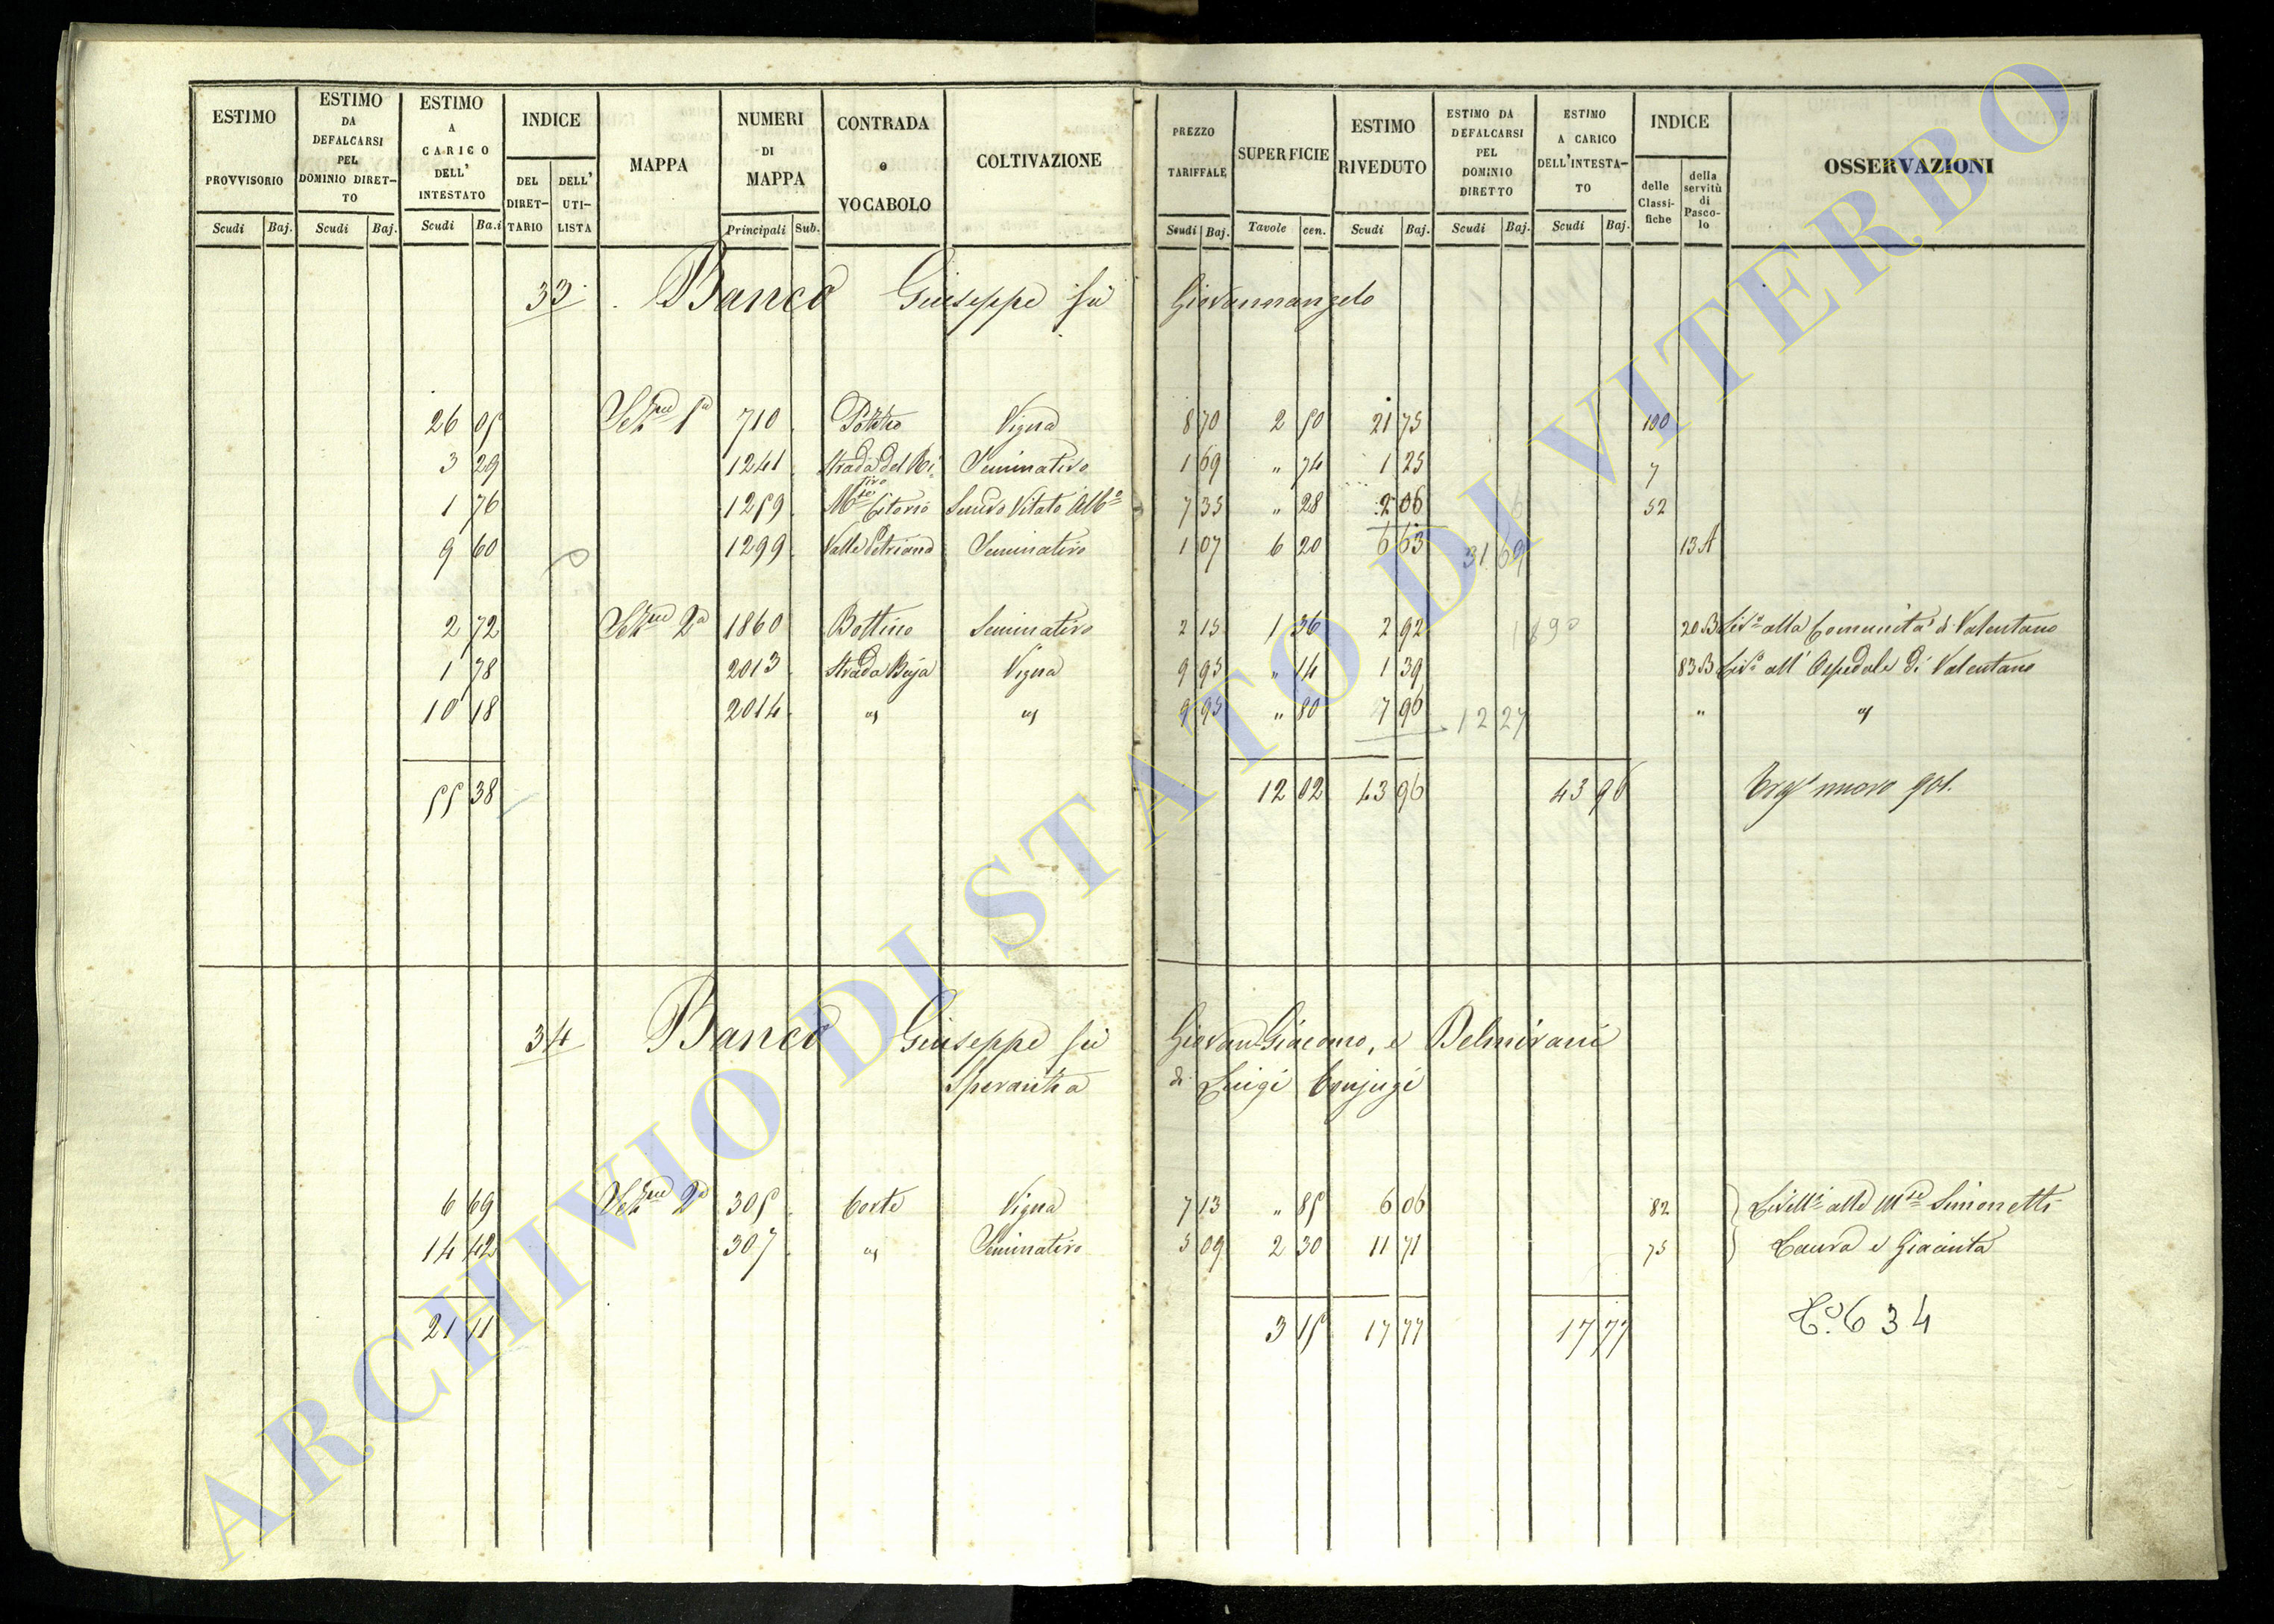 ESTIMO PROVVISORIO Scudi Baj.
ESTIMO DA DEFALCARSI PEL DOMINIO DIRETTO Scudi Baj.
ESTIMO A CARICO DELL' INTESTATO Scudi Ba.i
INDICE DEL DIRETTARIO DELL' UTILISTA
MAPPA
NUMERI DI MAPPA Principali Sub.
CONTRADA e VOCABOLO
COLTIVAZIONE
PREZZO TARIFFALE Scudi Baj.
SUPERFICIE Tavole cen.
ESTIMO RIVEDUTO Scudi Baj.
ESTIMO DA DEFALCARSI PEL DOMINIO DIRETTO Scudi Baj.
ESTIMO A CARICO DELL'INTESTATO Scudi Baj.
INDICE delle Classifiche della servitù di Pascolo
OSSERVAZIONI
33 Banco Giuseppe fu Giovannangelo
26 05 Sezne 1a 710 Vigna 8 70 2 50 21 75 100
3 29 1241 Strada del Ritiro Seminativo 1 69 " 74 1 25 7
1 76 1259 Mte Citorio Semvo Vitato Albo 7 35 " 28 2 06 52
9 60 1299 Valle Petriana Seminativo 1 07 6 20 6 63 31 69 13 A
2 72 Sezne 2a 1860 Bottino Seminativo 2 15 1 36 2 92 20 B Livo alla Comunità di Valentano
1 78 2013 Strada Buja Vigna 9 95 " 14 1 39 83 B Livo all' Ospedale di Valentano
10 18 2014 " " 9 95 " 80 7 96 12 27 " "
55 38 12 02 43 96 43 96 nuovo 901.
34 Banco Giuseppe fu Giovan Giacomo, e Belmirani
Speranza di Luigi Conjugi
6 69 Sezne 2a 305 Corte Vigna 7 13 " 85 6 06 82 Livelli alle Mse Simonetti
14 42 307 " Seminativo 5 09 2 30 11 71 75 Laura e Giacinta
21 11 3 15 17 77 17 77 634
ARCHIVIO DI STATO DI VITERBO